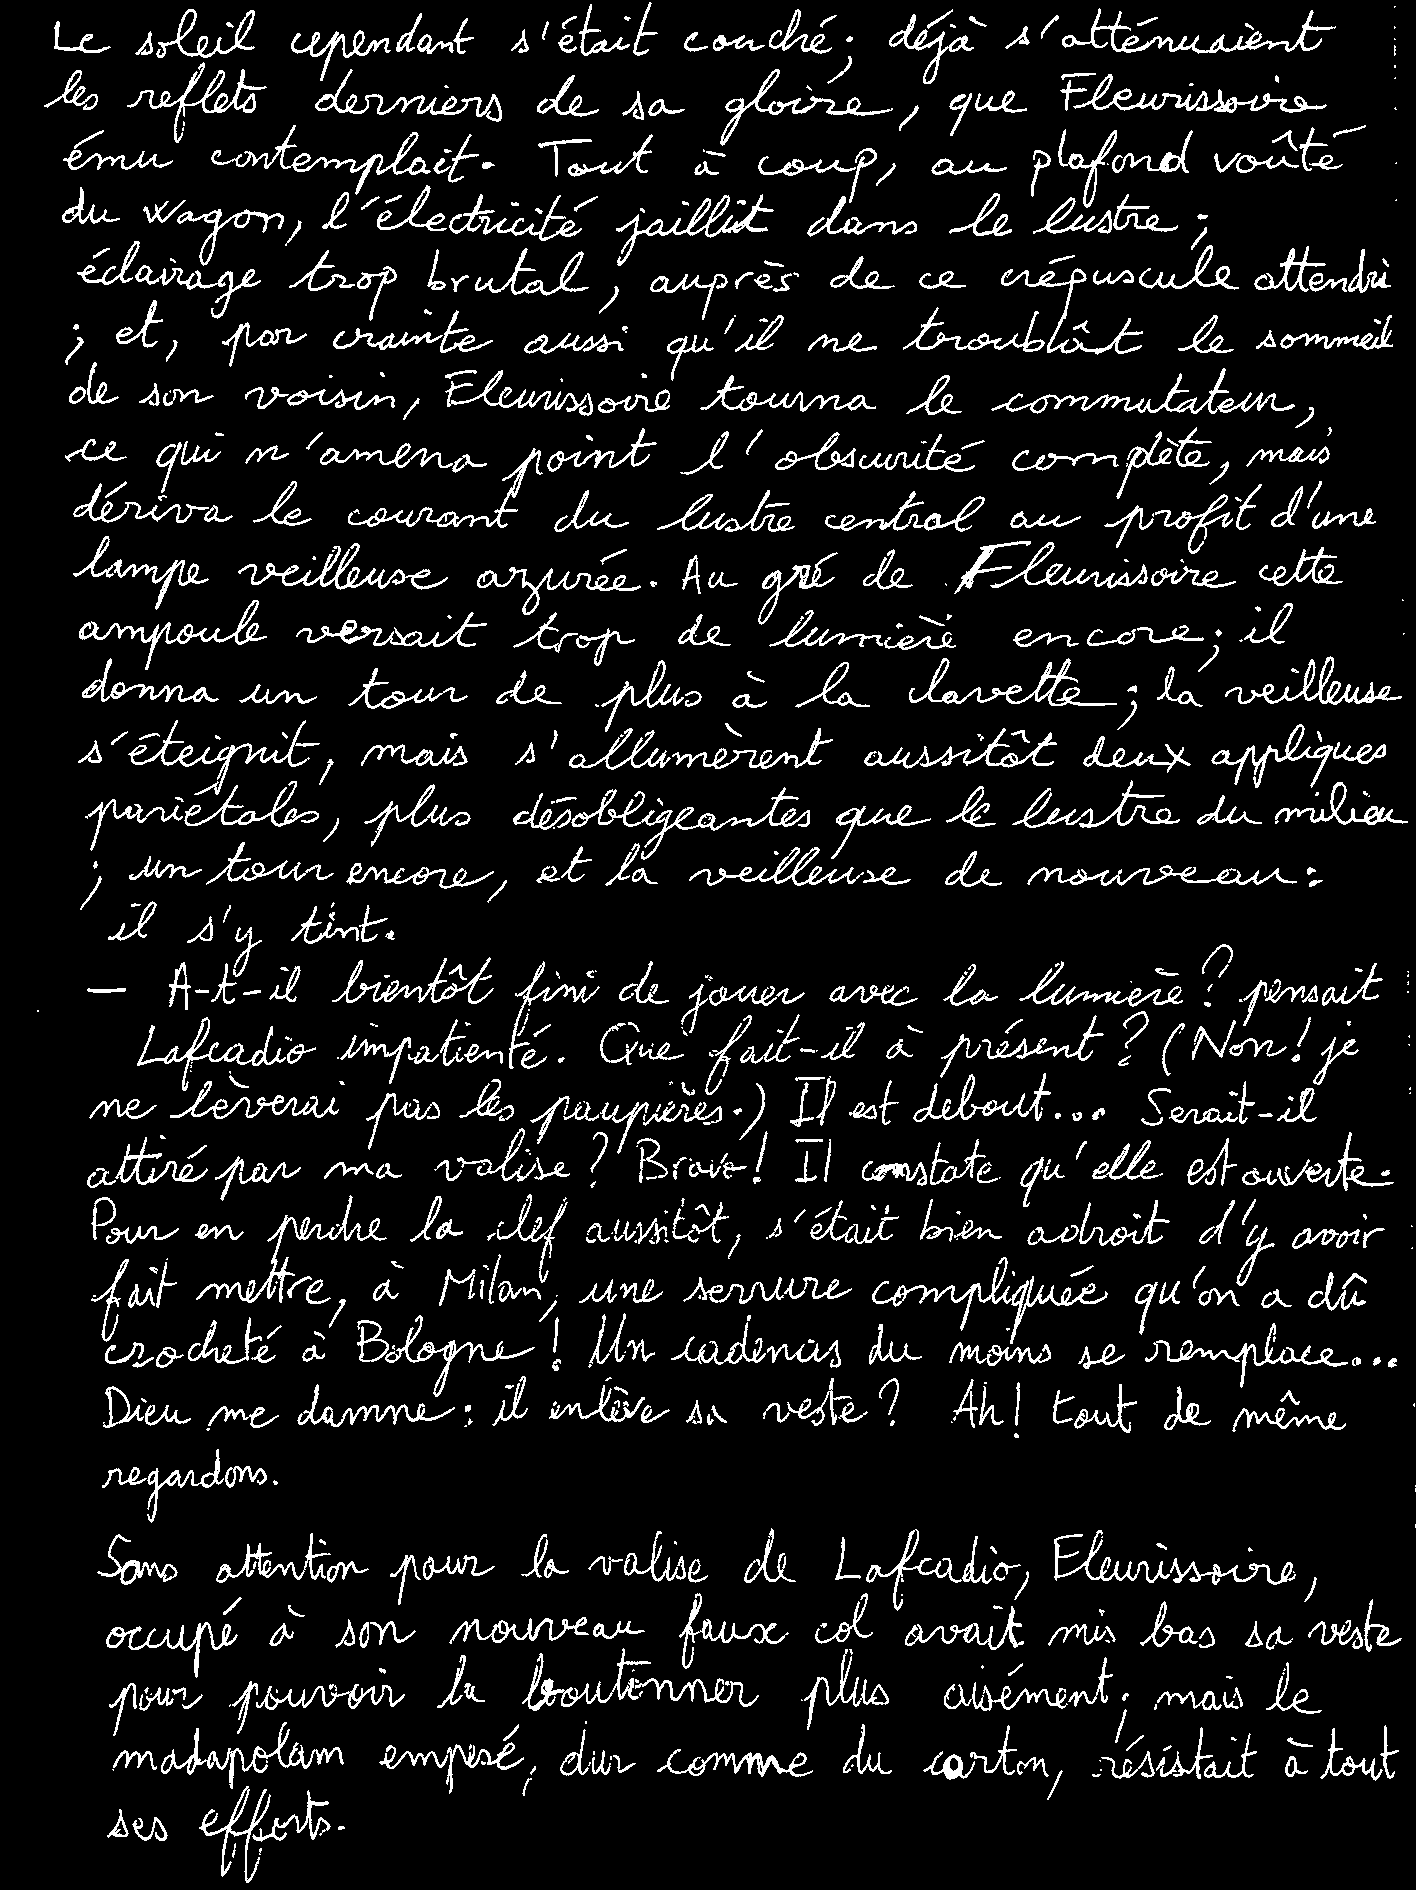 Le soleil cependant s'était couché ; déjà s'atténuaient
les reflets derniers de sa gloire, que Fleurissoire
ému contemplait. Tout à coup, au plafond voûté
du wagon, l'électricité jaillit dans le lustre ;
éclairage trop brutal, auprès de ce crépuscule attendri
; et, par crainte aussi qu'il ne troublât le sommeil
de son voisin, Fleurissoire tourna le commutateur,
ce qui n'amena point l'obscurité complète, mais
dériva le courant du lustre central au profit d'une
lampe veilleuse azurée. Au gré de Fleurissoire cette
ampoule versait trop de lumière encore ; il
donna un tour de plus à la clavette ; la veilleuse
s'éteignit, mais s'allumèrent aussitôt deux appliques
pariétales, plus désobligeantes que le lustre du milieu
; un tour encore, et la veilleuse de nouveau :
il s'y tint.
— A-t-il bientôt fini de jouer avec la lumière ? pensait
Lafcadio impatienté. Que fait-il à présent ? (Non ! je
ne lèverai pas les paupières.) Il est debout... Serait-il
attiré par ma valise ? Bravo ! Il constate qu'elle est ouverte.
Pour en perdre la clef aussitôt, s'était bien adroit d'y avoir
fait mettre, à Milan, une serrure compliquée qu'on a dû
crocheté à Bologne ! Un cadenas du moins se remplace...
Dieu me damne : il enlève sa veste ? Ah ! tout de même
regardons.
Sans attention pour la valise de Lafcadio, Fleurissoire,
occupé à son nouveau faux col avait mis bas sa veste
pour pouvoir la boutonner plus aisément ; mais le
madapolam empesé, dur comme du carton, résistait à tout
ses efforts.